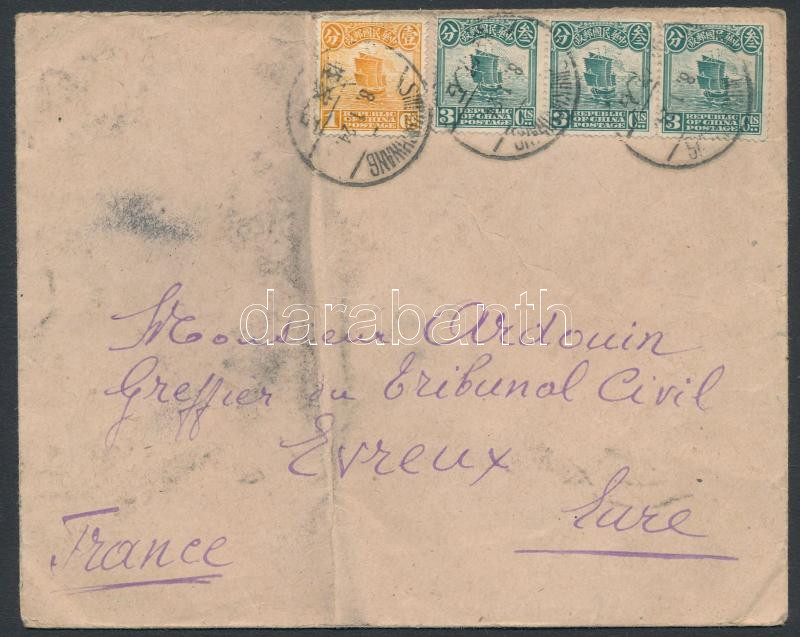 分 政郵國民華中 壹
REPUBLIC
1 OF CHINA Ct
POSTAGE
分 政郵國民華中 叁
REPUBLIC
3 OF CHINA Cts
POSTAGE
分 政郵國民華中 叁
REPUBLIC
3 OF CHINA Cts
POSTAGE
分 政郵國民華中 叁
REPUBLIC
3 OF CHINA Cts
POSTAGE
Monsieur Ardouin
darabanth
Greffier du Tribunal Civil
Evreux
Eure
France